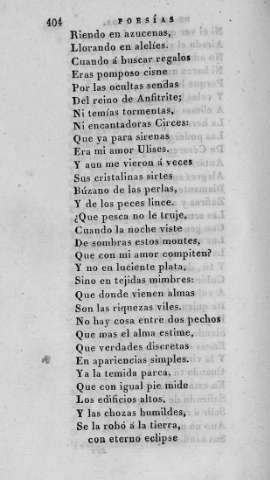 404 POESÍAS
Riendo en azucenas,
Llorando en alelíes.
Cuando á buscar regalos
Eras pomposo cisne
Por las ocultas sendas
Del reino de Anfitrite;
Ni temías tormentas,
Ni encantadoras Circes:
Que ya para sirenas
Era mi amor Ulises.
Y aun me vieron á veces
Sus cristalinas sirtes
Búzano de las perlas,
Y de los peces lince.
¿Que pesca no le truje,
Cuando la noche viste
De sombras estos montes,
Que con mi amor compiten?
Y no en luciente plata,
Sino en tejidas mimbres:
Que donde vienen almas
Son las riquezas viles.
No hay cosa entre dos pechos
Que mas el alma estime,
Que verdades discretas
En apariencias simples.
Ya la temida parca,
Que con igual pie mide
Los edificios altos,
Y las chozas humildes,
Se la robó á la tierra,
con eterno eclipse